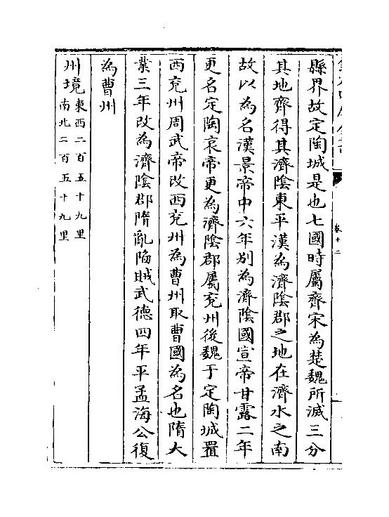 縣界故定陶城是也七國時屬齊宋為楚魏所滅三分
其地齊得其濟陰東平漢為濟陰郡之地在濟水之南
故以為名漢景帝中六年別為濟陰國宣帝甘露二年
更名定陶哀帝更為濟陰郡屬兖州後魏于定陶城置
西兖州周武帝改西兖州為曹州取曹國為名也隋大
業三年改為濟陰郡隋亂陷賊武德四年平孟海公復
為曹州
州境東西二百五十九里
南北二百五十九里
卷十二